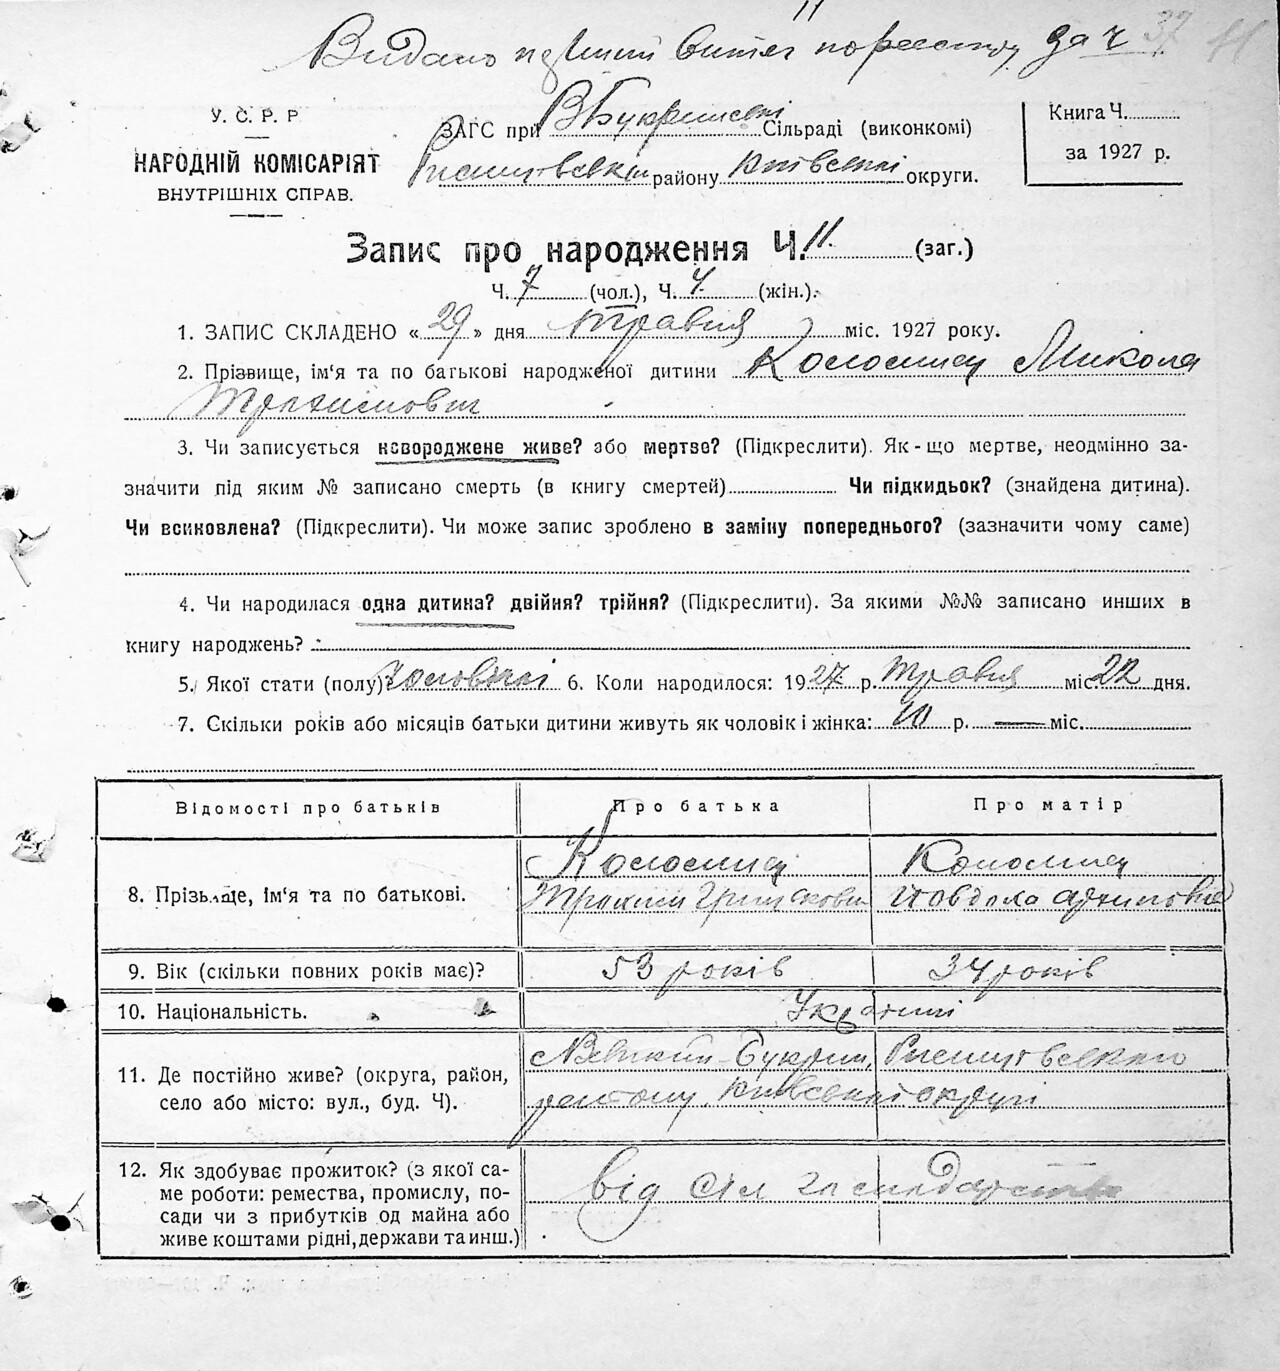 Видано витяг по реєстру за ч 37
У. С. Р. Р
НАРОДНІЙ КОМІСАРІЯТ
ВНУТРІШНІХ СПРАВ.
ЗАГС при В Букринській Сільраді (виконкомі)
Ржищівськім району Київської округи.
Книга Ч.
за 1927 р.
Запис про народження Ч. 11 (заг.)
Ч. 7 (чол.), Ч. 4 (жін.).
1. ЗАПИС СКЛАДЕНО «29» дня травня міс. 1927 року.
2. Прізвище, ім'я та по батькові народженої дитини Коломиєц Микола
Трохимович
3. Чи записується новороджене живе? або мертве? (Підкреслити). Як-що мертве, неодмінно за-
значити під яким № записано смерть (в книгу смертей) Чи підкидьок? (знайдена дитина).
Чи всиновлена? (Підкреслити). Чи може запис зроблено в заміну попереднього? (зазначити чому саме)
4. Чи народилася одна дитина? двійня? трійня? (Підкреслити). За якими №№ записано инших в
книгу народжень?
5. Якої стати (полу) чоловічої 6. Коли народилося: 1927 р. травня міс. 22 дня.
7. Скільки років або місяців батьки дитини живуть як чоловік і жінка: 10 р. — міс.
Відомості про батьків Про батька Про матір
8. Прізвище, ім'я та по батькові.
Коломиєц
Трохим
Коломиєц
Явдоха Архиповна
9. Вік (скільки повних років має)? 53 років 34 років
10. Національність. Українці
11. Де постійно живе? (округа, район,
село або місто: вул., буд. Ч).
с Великий-Букрин, Ржищівського
району, Київської округи
12. Як здобуває прожиток? (з якої са-
ме роботи: ремества, промислу, по-
сади чи з прибутків од майна або
живе коштами рідні, держави та инш.)
від сіл господарства